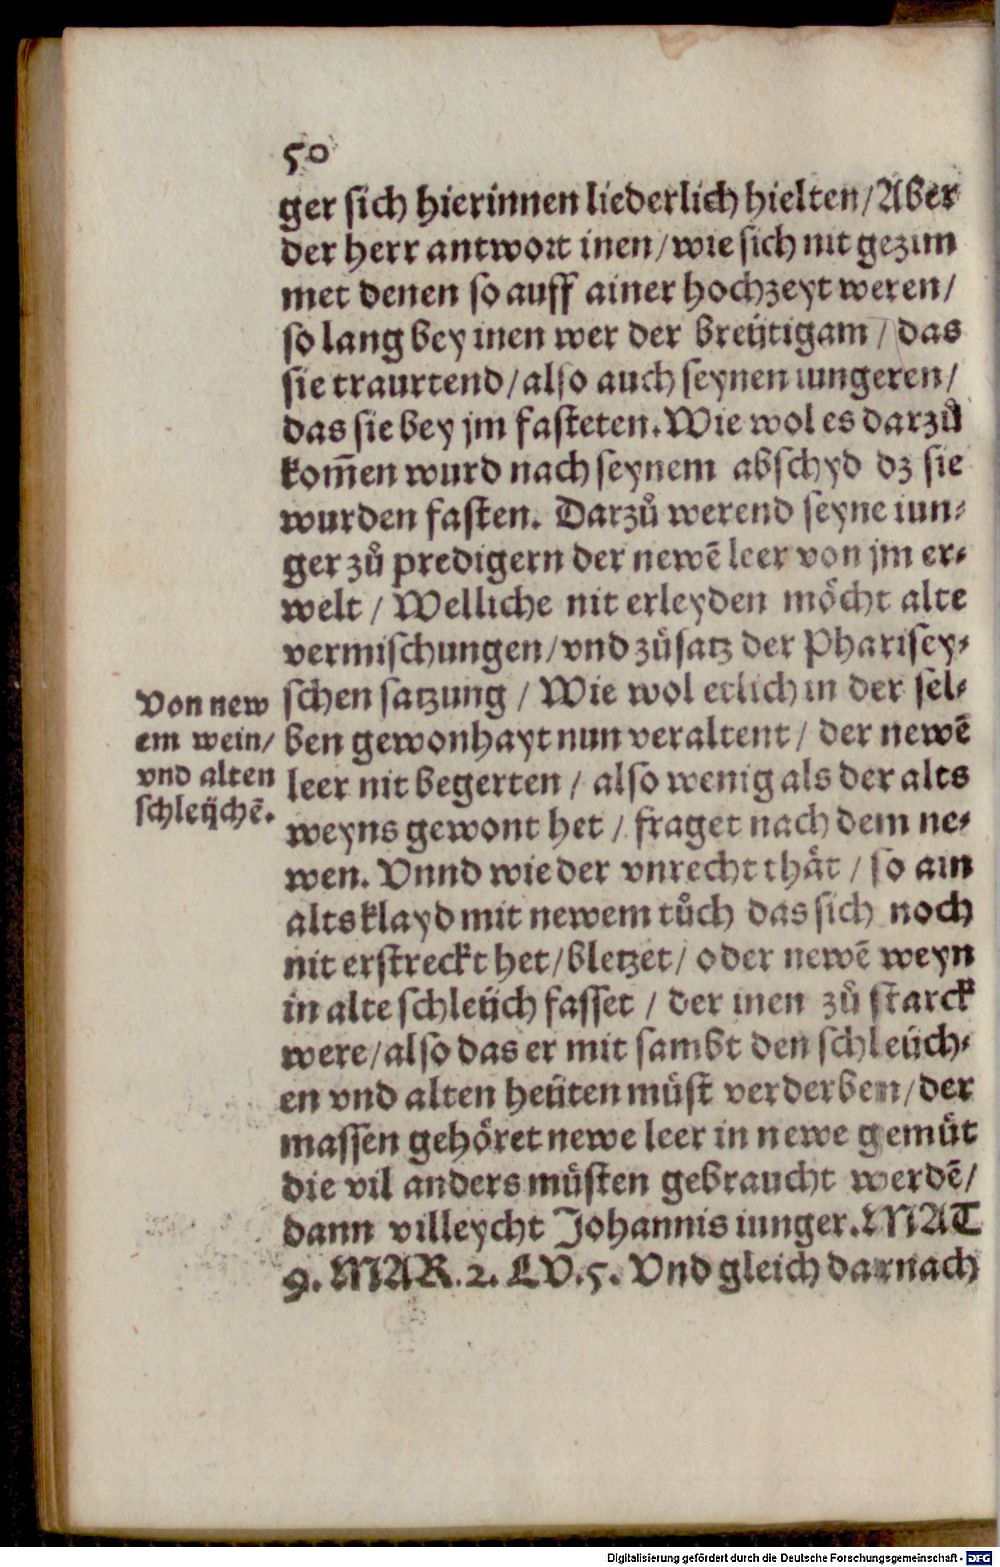 50
ger sich hierinnen liederlich hielten/Aber
der herr antwort inen/wie sich nit gezim
met denen so auff ainer hochzeyt weren/
so lang bey inen wer der breütigam/das
sie traurtend/also auch seynen iungeren/
das sie bey jm fasteten.Wie wol es darzů
kom̃en wurd nach seynem abschyd dz sie
wurden fasten. Darzů werend seyne iun⸗
ger zů predigern der newẽ leer von jm er⸗
welt / Welliche nit erleyden möcht alte
vermischungen/vnd zůsatz der Pharisey⸗
schen satzung / Wie wol etlich in der sel⸗
ben gewonhayt nun veraltent/ der newẽ
leer nit begerten / also wenig als der alts
weyns gewont het / fraget nach dem ne⸗
wen. Vnnd wie der vnrecht thät / so ain
alts klayd mit newem tůch das sich noch
nit erstreckt het/bletzet/ oder newẽ weyn
in alte schleüch fasset / der inen zů starck
were/also das er mit sambt den schleüch⸗
en vnd alten heüten müst verderben/der
massen gehöret newe leer in newe gemüt
die vil anders müsten gebraucht werdẽ/
dann villeycht Johannis iunger.MAT
9. MAR.2. LV.5. Vnd gleich darnach
Von new
em wein/
vnd alten
schleüchẽ.
Digitalisierung gefördert durch die Deutsche Forschungsgemeinschaft - DFG